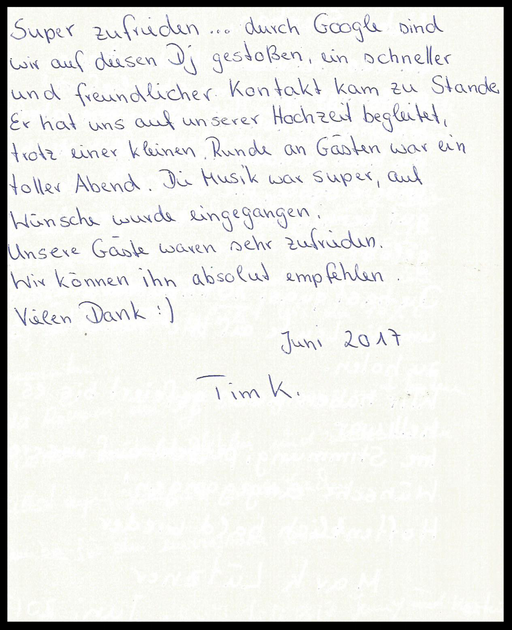 Super zufrieden ... durch Google sind
wir auf diesen Dj gestoßen, ein schneller
und freundlicher Kontakt kam zu Stande
Er hat uns auf unserer Hochzeit begleitet,
trotz einer kleinen Runde an Gästen war ein
toller Abend. Die Musik war super, auf
Wünsche wurde eingegangen.
Unsere Gäste waren sehr zufrieden.
Wir können ihn absolut empfehlen.
Vielen Dank :)
Juni 2017
Tim K.